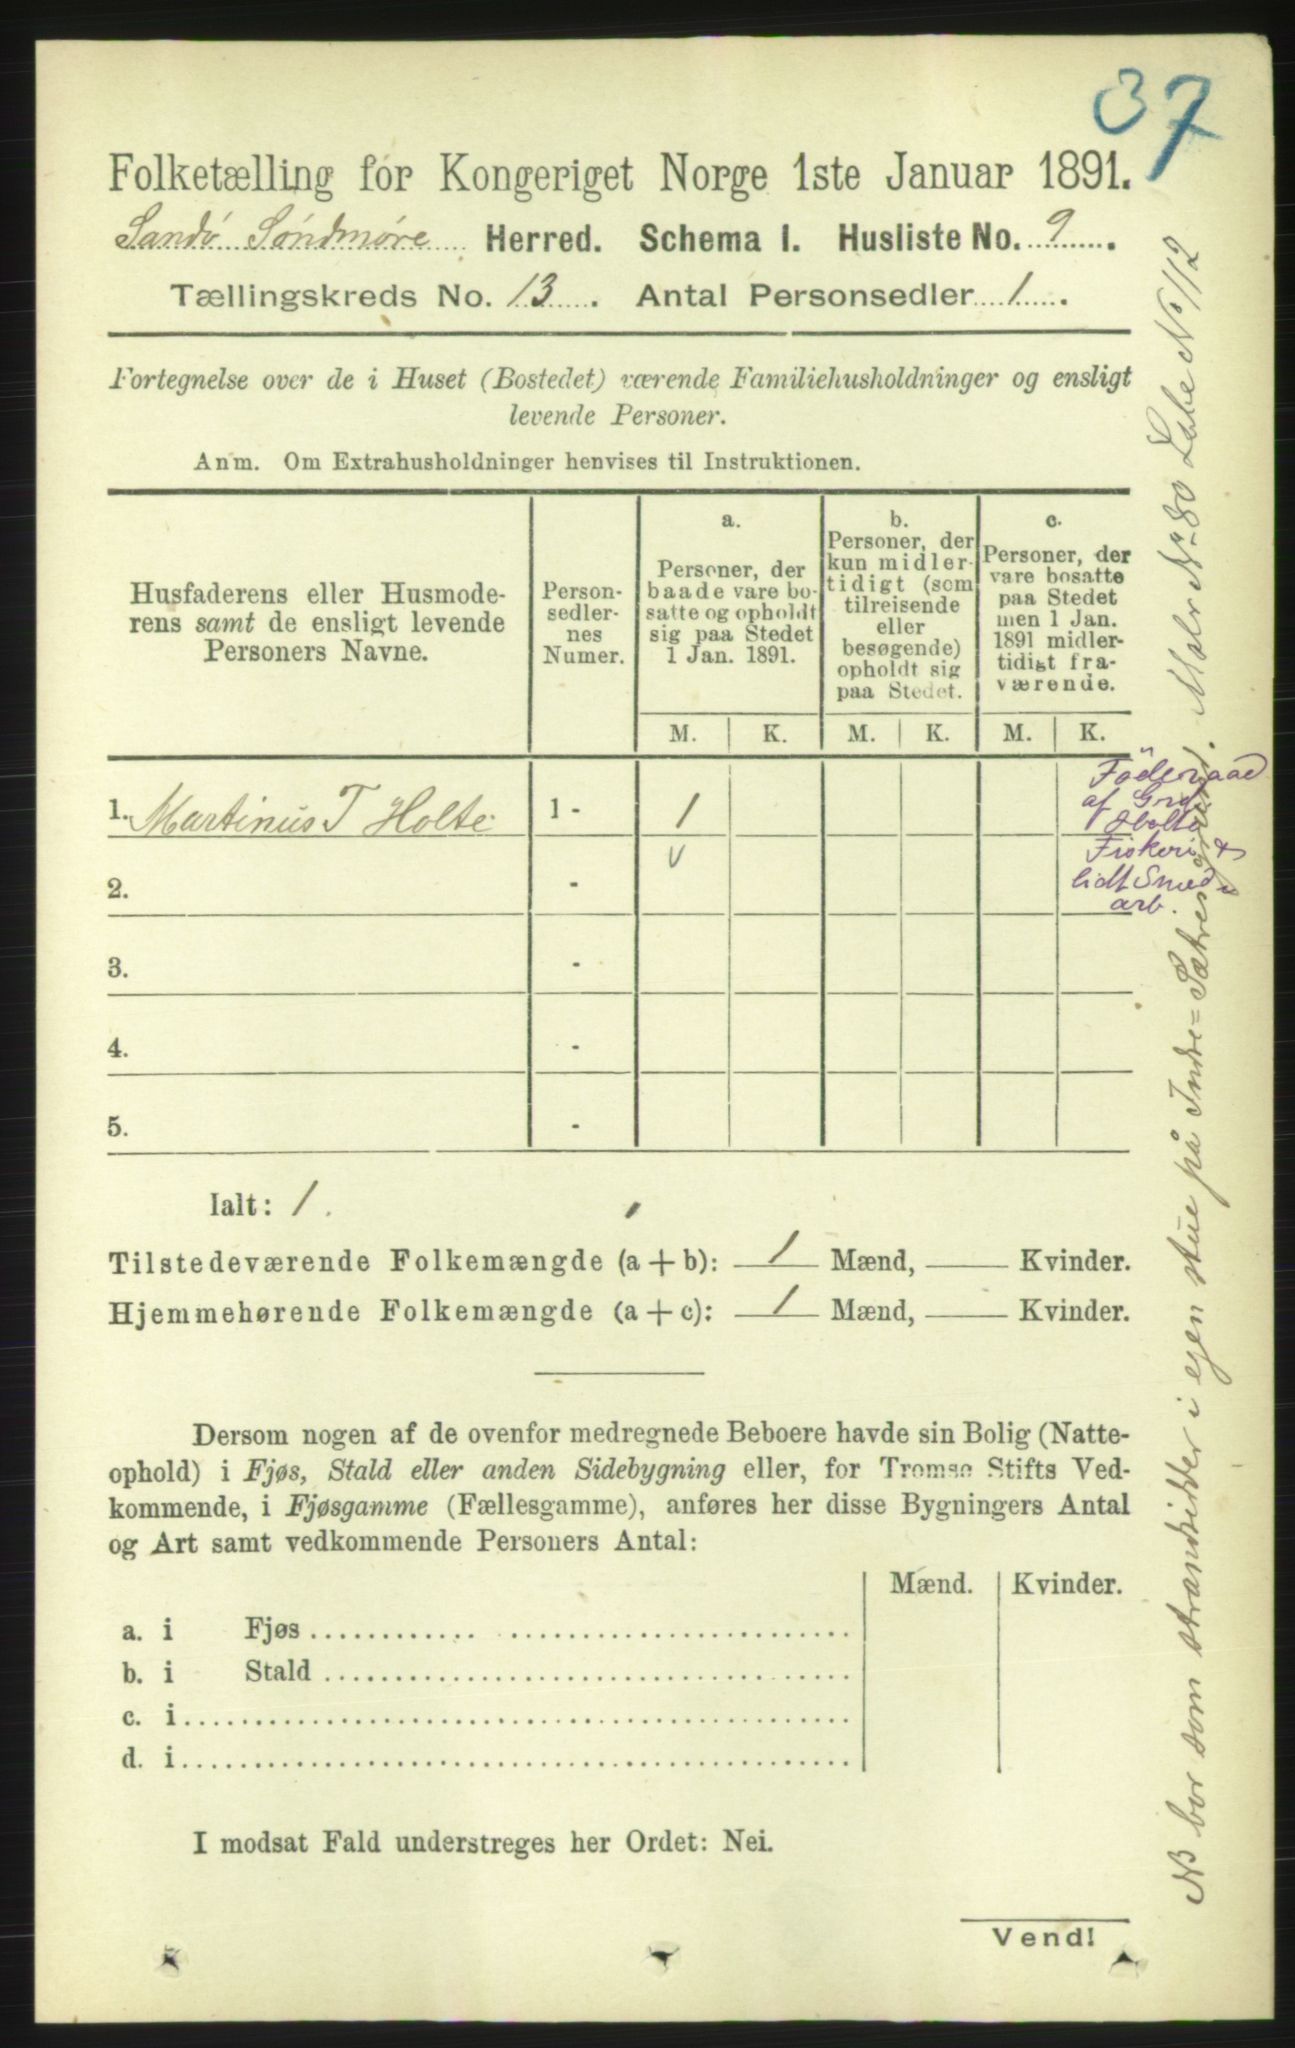 37
Folketælling for Kongeriget Norge 1ste Januar 1891.
Sandø Søndmøre Herred. Schema I. Husliste No. 9.
Tællingskreds No. 13. Antal Personsedler 1.
Fortegnelse over de i Huset (Bostedet) værende Familiehusholdninger og ensligt
levende Personer.
Anm. Om Extrahusholdninger henvises til Instruktionen.
Husfaderens eller Husmode-
rens samt de ensligt levende
Personers Navne.
Person-
sedler-
nes
Numer.
a.
Personer, der
baade vare bo-
satte og opholdt
sig paa Stedet
1 Jan. 1891.
b.
Personer, der
kun midler-
tidigt (som
tilreisende
eller
besøgende)
opholdt sig
paa Stedet.
c.
Personer, der
vare bosatte
paa Stedet
men 1 Jan.
1891 midler-
tidigt fra-
værende.
M. K. M. K. M. K.
1. Martinus T Holte 1 - 1
Föderaad
af Grd
Holte
Fiskeri &
lidt Smed
arb.
v
2. -
3. -
4. -
5. -
Ialt: 1.
Tilstedeværende Folkemængde (a + b): 1 Mænd, — Kvinder.
Hjemmehørende Folkemængde (a + c): 1 Mænd, — Kvinder.
Dersom nogen af de ovenfor medregnede Beboere havde sin Bolig (Natte-
ophold) i Fjøs, Stald eller anden Sidebygning eller, for Tromsø Stifts Ved-
kommende, i Fjøsgamme (Fællesgamme), anføres her disse Bygningers Antal
og Art samt vedkommende Personers Antal:
Mænd. Kvinder.
a. i Fjøs
b. i Stald
c. i
d. i
I modsat Fald understreges her Ordet: Nei.
Vend!
NB bor som strandsidder i egen stue på Indre=Sætres grund. Matr No 80 Løbe No 112